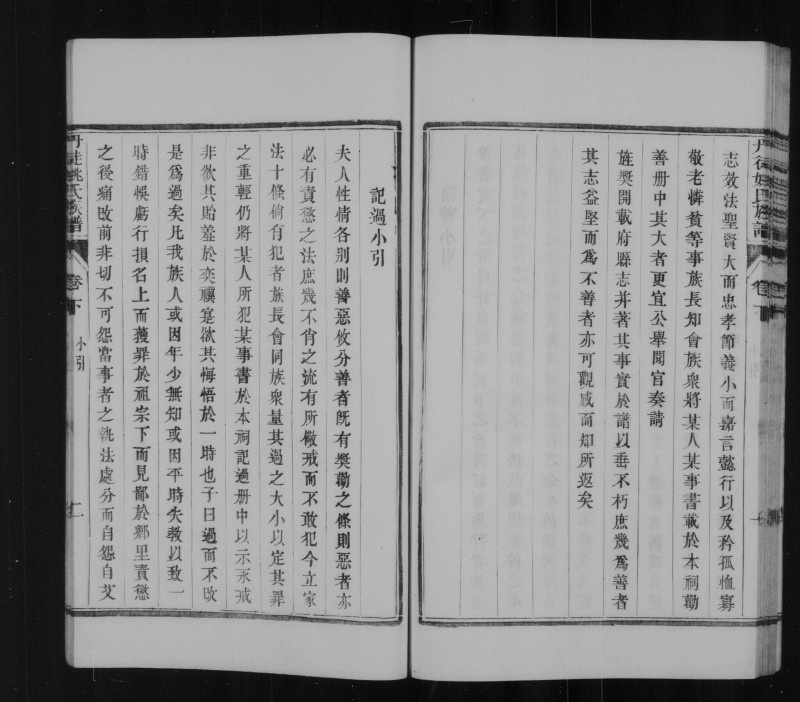 志效法聖賢大而忠孝節義小而嘉言懿行以及矜孤恤寡
敬老憐貧等事族長知會族衆將某人某事書載於本祠勸
善册中其大者更宜公舉聞官奏請
旌獎開載府縣志并著其事實於譜以垂不朽庶幾爲善者
其志益堅而爲不善者亦可觀感而知所返矣
記過小引
夫人性情各別則善惡攸分善者旣有獎勸之條則惡者亦
必有責懲之法庶幾不肖之流有所儆戒而不敢犯今立家
法十條倘有犯者族長會同族衆量其過之大小以定其罪
之重輕仍將某人所犯某事書於本祠記過册中以示永戒
非欲其貽羞於奕禩寔欲其悔悟於一時也子曰過而不改
是爲過矣凡我族人或因年少無知或因平時失教以致一
時錯悞虧行損名上而獲罪於祖宗下而見鄙於鄉里責懲
之後痛改前非切不可怨當事者之執法處分而自怨自艾
丹徒姚氏族譜
卷下
小引
十一